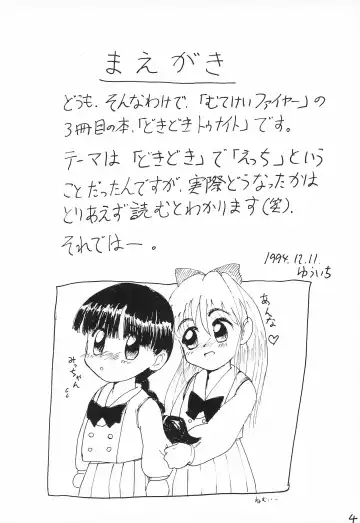 まえがき
どうも、そんなわけで、「むてけいファイヤー」の
3冊目の本、「どきどきトゥナイト」です。
テーマは「どきどき」で「えっち」という
ことだったんですが、実際どうなったかは
とりあえず読むとわかります(笑)。
それでは一。
1994.12.11.
ゆういち
あんな♡
みっちゃん
ねむい…
4